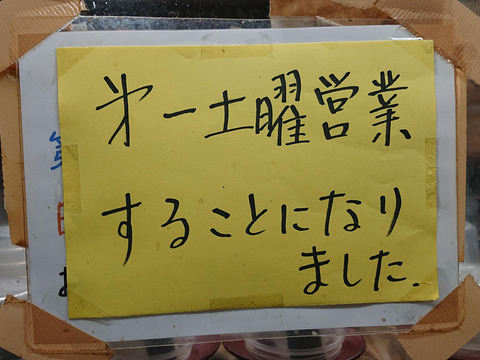 第一土曜営業
することになり
ました.